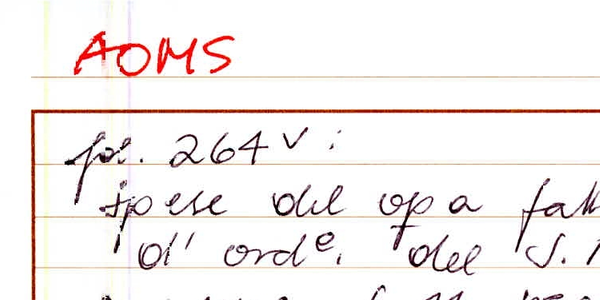 AOMS
fol. 264v:
spese del opa fatt
d' ord.e del S.